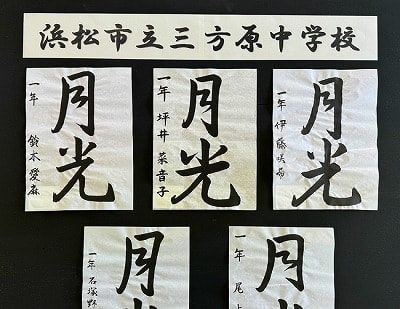 浜松市立三方原中学校
月光
一年 伊藤咲希
月光
一年 坪井菜音子
月光
一年 鈴木愛麻
月光
一年 尾上
月光
一年 石塚野